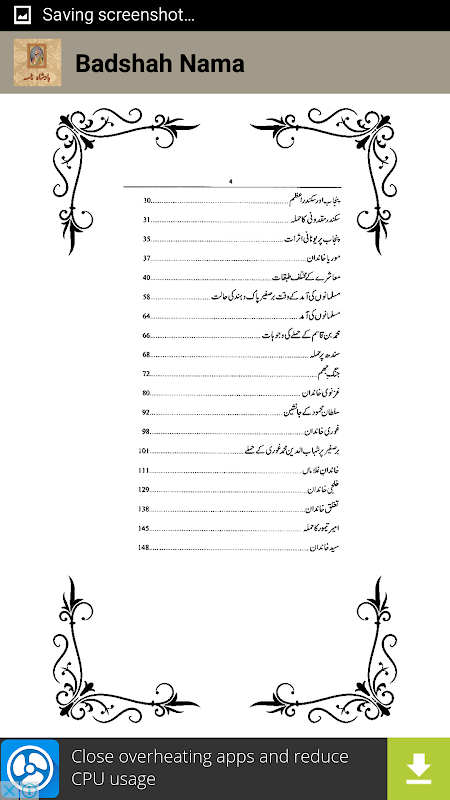 Saving screenshot...
بادشاہ نامہ
Badshah Nama
4
پنجاب اور سکندر اعظم 30
سکندر مقدونی کا حملہ 31
پنجاب پر یونانی اثرات 35
موریا خاندان 37
معاشرے کے مختلف طبقات 40
مسلمانوں کی آمد کے وقت برصغیر پاک و ہند کی حالت 58
مسلمانوں کی آمد 64
محمد بن قاسم کے حملے کی وجوہات 66
سندھ پر حملہ 68
جنگ جہلم 72
غزنوی خاندان 80
سلطان محمود کے جانشین 92
غوری خاندان 98
برصغیر پر شہاب الدین محمد غوری کے حملے 101
خاندان غلاماں 111
خلجی خاندان 129
تغلق خاندان 138
امیر تیمور کا حملہ 145
سید خاندان 148
Close overheating apps and reduce
CPU usage